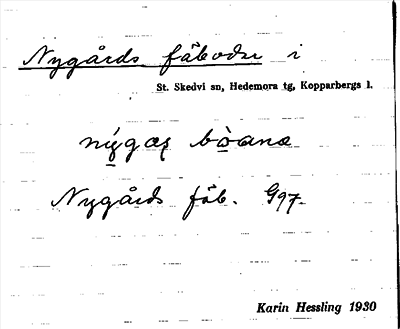 Nygårds fäbodar i
St. Skedvi sn, Hedemora tg, Kopparbergs l.
nýgaṣ bòana
Nygårds fäb. G97.
Karin Hessling 1930